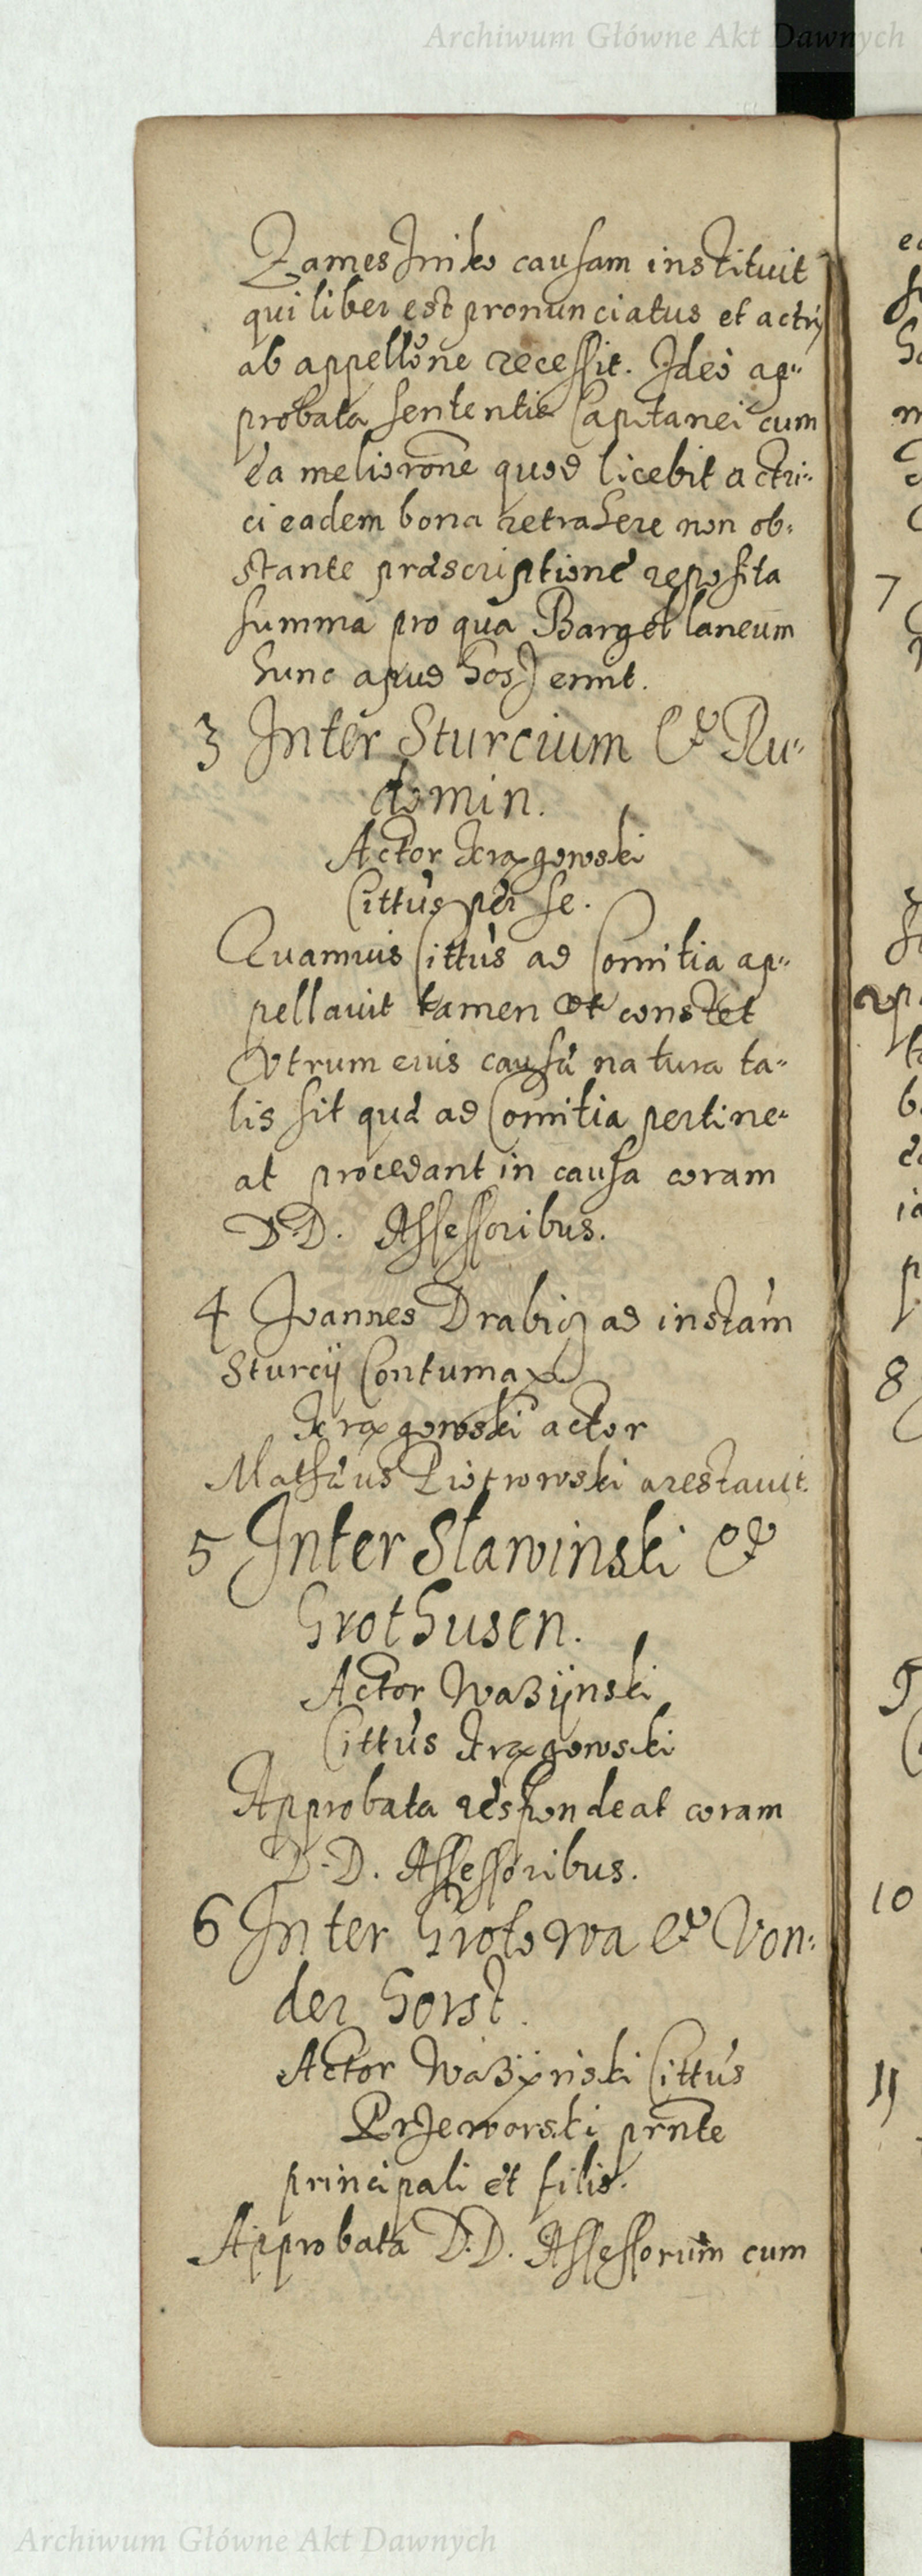 Archiwum Główne Akt Dawnych
causam instituit
qui liber est pronunciatus et actrix
ab appellõne recessit. Ideo ap-
probata sententia Capitanei cum
ea meliorõne quod licebit actri-
ci eadem bona retrahere non ob-
stante præscriptione reposita
summa pro qua Bargel laneum
hunc apud emit.
3 Inter Sturcium & Ru-
domin.
Actor Kraxgowski
Cittus per se.
Quamuis Cittus ad Comitia ap-
pellauit tamen ut constet
Vtrum eius causæ natura ta-
lis sit quæ ad Comitia pertine-
at procedant in causa coram
D.D. Assessoribus.
4 Joannes Drabicz ad instam
Sturcÿ Contumax.
Kraxgowski actor
Mathæus Piotrowski arestauit.
5 Inter Slawinski &
Grothusen.
Actor Wazÿnski
Cittus Kraxgowski
Approbata respondeat coram
D.D. Assessoribus.
6 Inter Grotowa & Von-
der Horst.
Actor Wazÿnski Cittus
Przeworski prnte
principali et filio.
Approbata D.D. Assessorum cum
7
8
9
10
11
Archiwum Główne Akt Dawnych